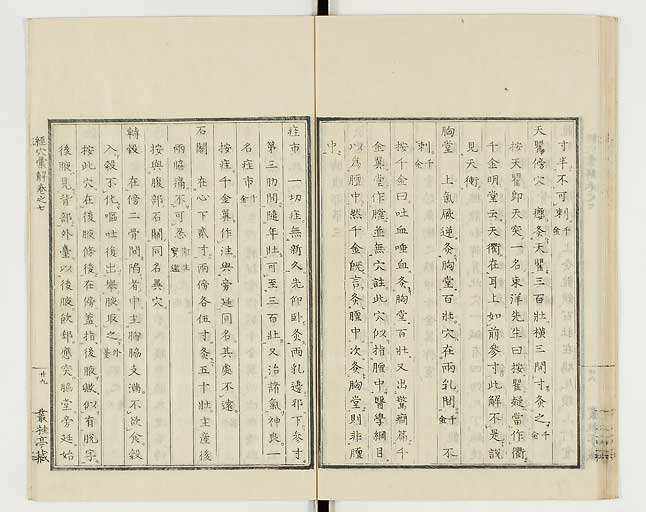 寸半不可刺千金
天瞿傍穴 癭灸天瞿三百壯橫三間寸灸之千金
按天瞿卽天突一名東洋先生曰按瞿疑當作衢
千金明堂云天衢在耳上如前參寸此解不是說
見天衝
胸堂 上氣厥逆灸胸堂百壯穴在兩乳間千金 不
刺千金
按千金曰吐血唾血灸胸堂百壯又出驚癇篇千
金翼堂作膛並無穴註此穴似指膻中醫學綱目
以爲膻中然千金旣言灸膻中次灸胸堂則非膻
中
疰市 一切疰無新久先仰臥灸兩乳邊邪下參寸
第三肋間隨年壯可至三百壯又治諸氣神良一
名疰市千金
按疰千金翼作注與旁廷同名其處不遠
石關 在心下貳寸兩傍各伍寸灸五十壯主產後
兩脇痛不可忍
按與腹部石關同名異穴
轉穀 在傍二骨間陷者中主胸脇支滿不欲食穀
入穀不化嘔吐復出擧腋取之外臺
按此穴在後腋條後在傍蓋指後腋似有脫字
後腋見背部外臺以後腋飮郄應突脇堂旁廷始
經穴彙解卷之七
廿九
叢桂亭藏